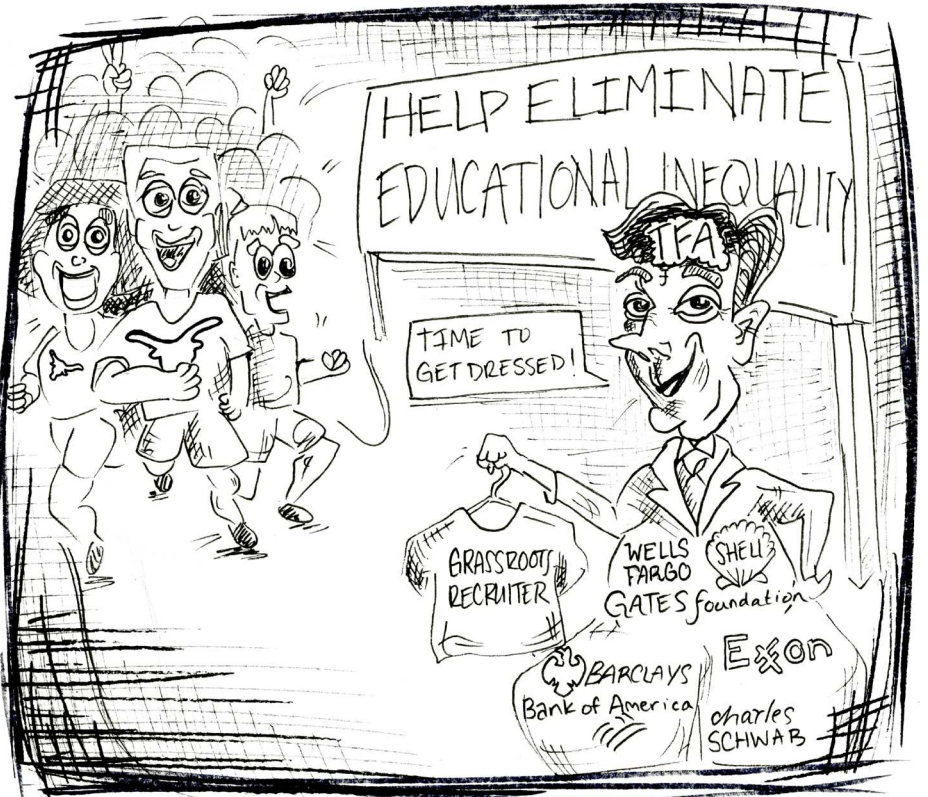 HELP ELIMINATE
EDUCATIONAL INEQUALITY
TFA
TIME TO
GET DRESSED!
GRASSROOTS
RECRUITER
WELLS
FARGO
SHELL
GATES foundation
BARCLAYS
Bank of America
Exxon
charles
SCHWAB